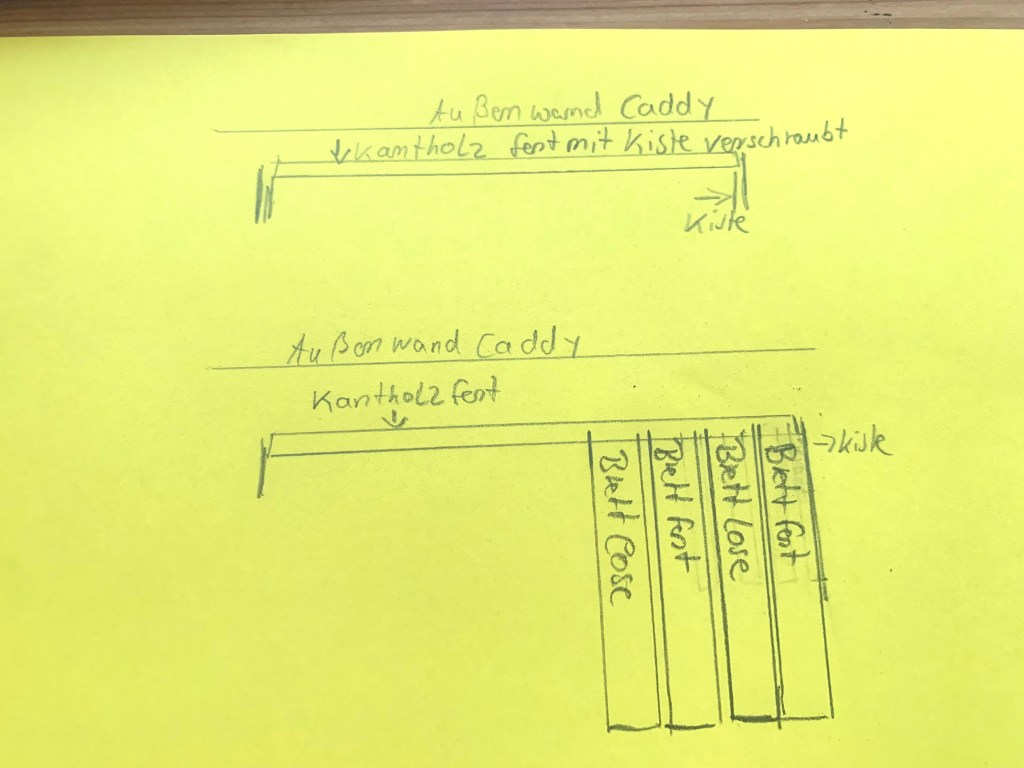 Außen wand Caddy
Kantholz fest mit Kiste verschraubt
Kiste
Außen wand Caddy
Kantholz fest
Kiste
Brett Lose
Brett fest
Brett Lose
Brett fest